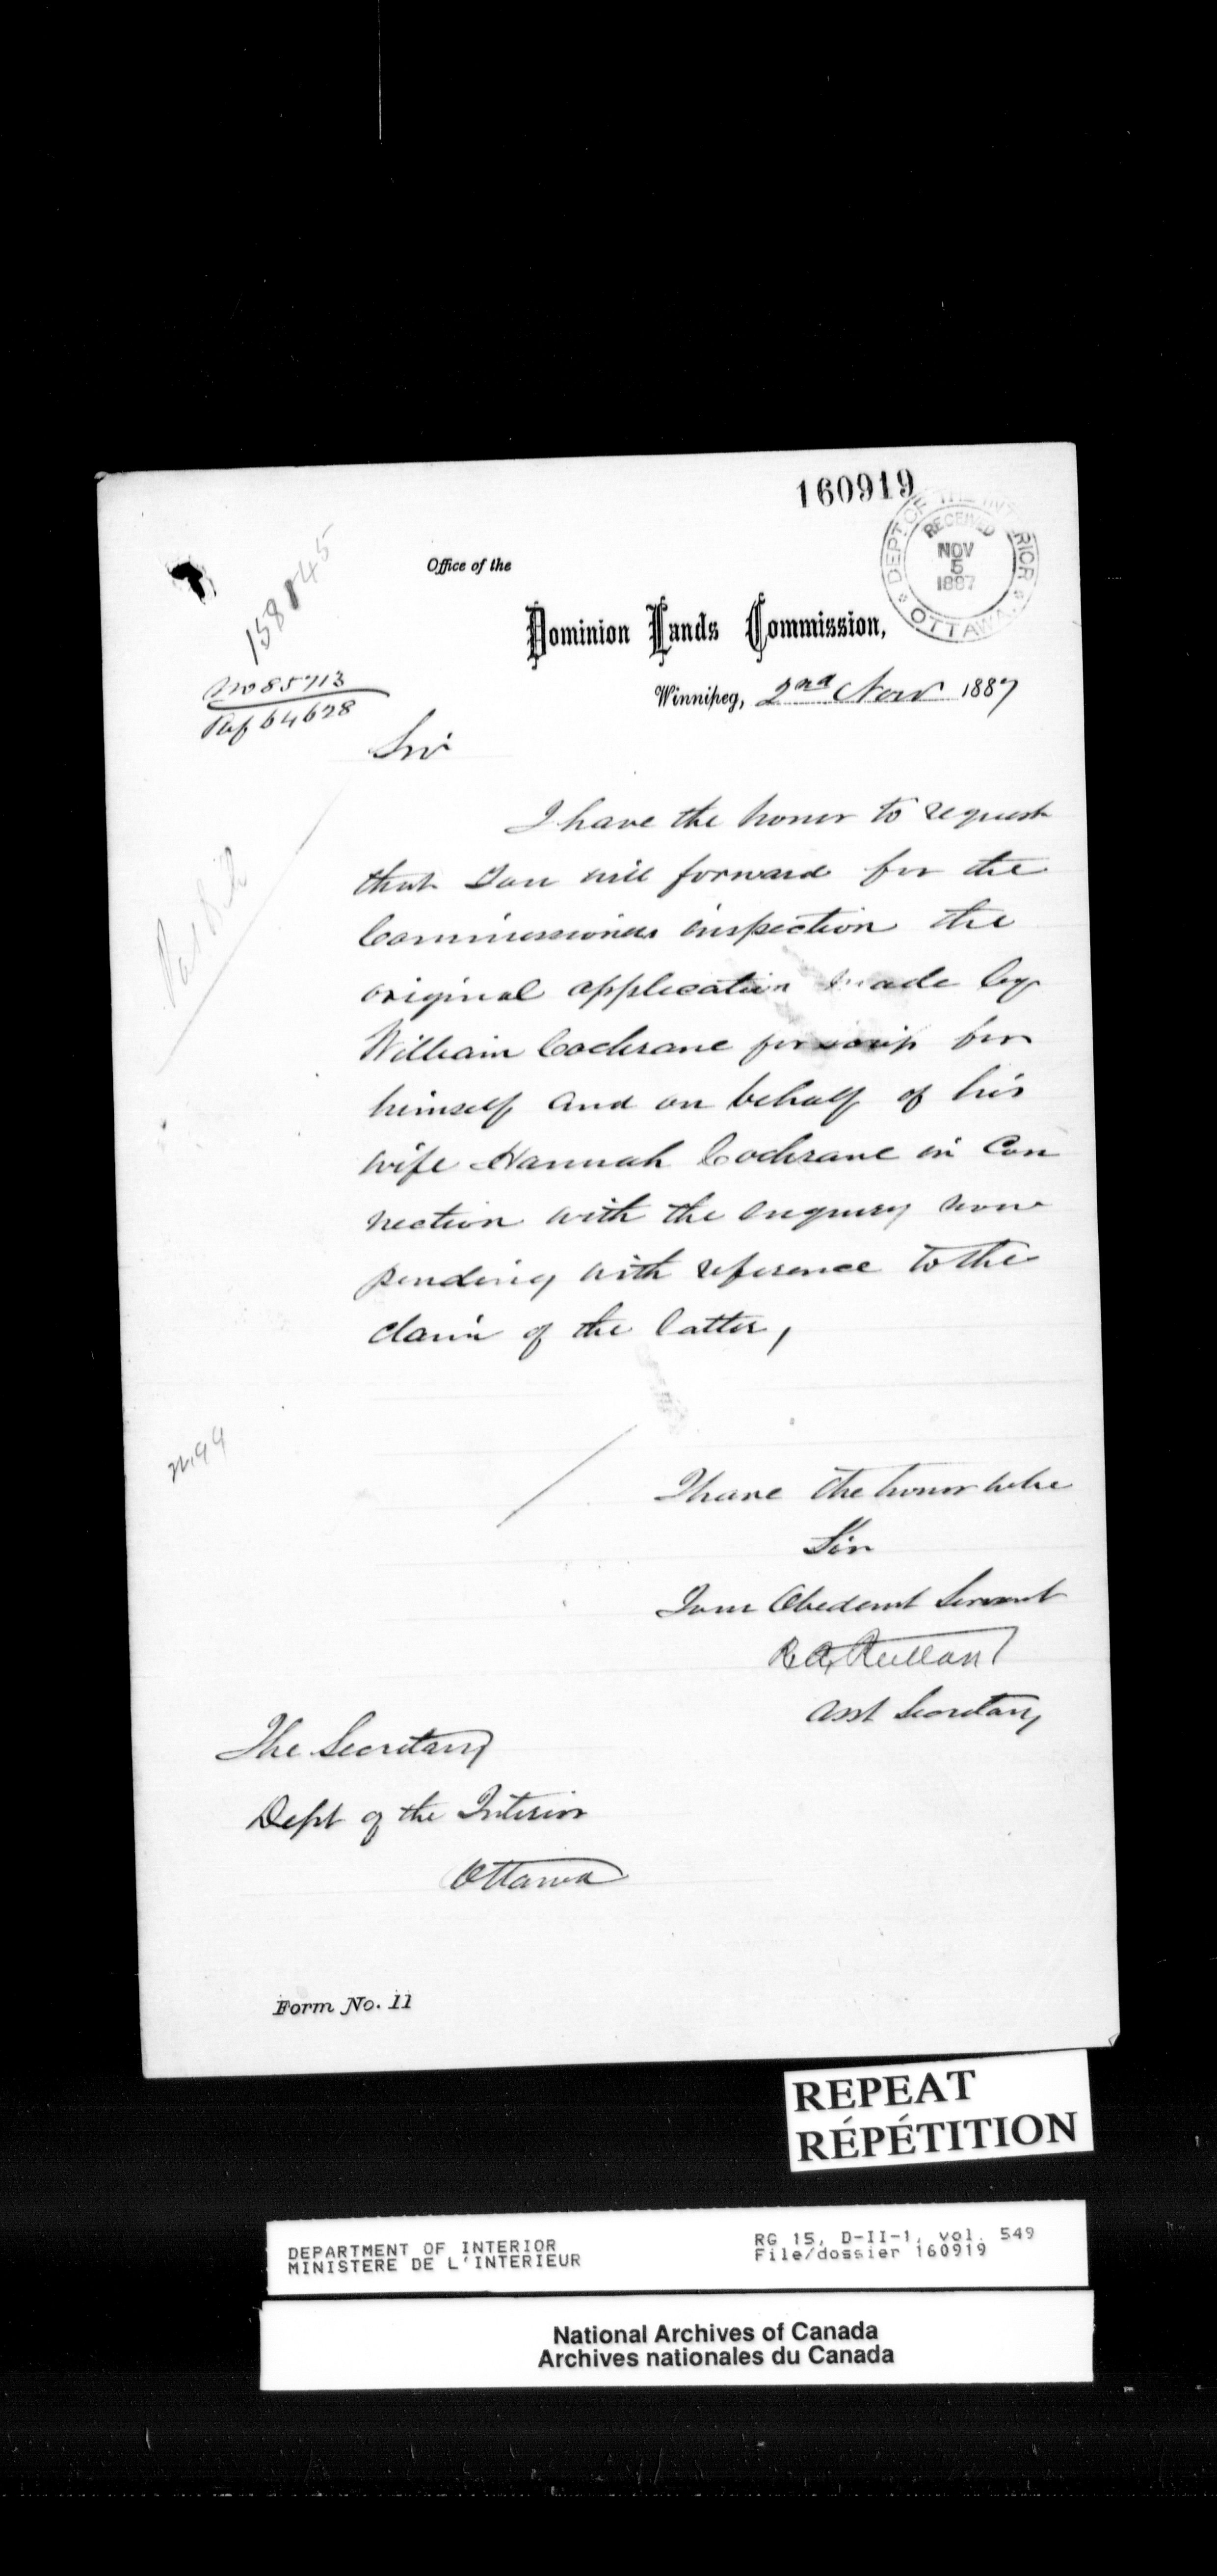 160919
DEPT. OF THE INTERIOR
RECEIVED
NOV
5
1887
OTTAWA
158145
Office of the
Dominion Lands Commission,
No 85713
Ref 64628
Winnipeg, 2nd Nov 1887
Sir
I have the honor to request
that you will forward for the
Commissioners inspection the
original application made by
William Cochrane for scrip for
himself and on behalf of his
wife Hannah Cochrane in Con
nection with the enquiry now
pending with reference to the
claim of the latter,
I have the honor to be
Sir
Your Obedient Servant
R. A. Ruttan
Asst Secretary
The Secretary
Dept of the Interior
Ottawa
Form No. 11
REPEAT
RÉPÉTITION
DEPARTMENT OF INTERIOR
MINISTERE DE L'INTERIEUR
RG 15, D-II-1, vol. 549
File/dossier 160919
National Archives of Canada
Archives nationales du Canada